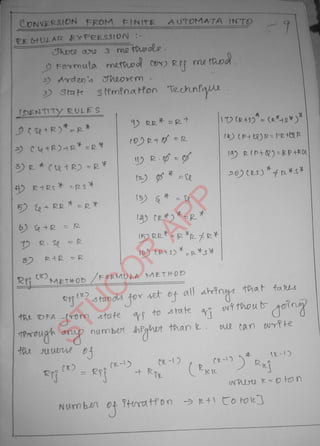 CONVERSION FROM FINITE AUTOMATA INTO - 9
REGULAR EXPRESSION :-
There are 3 methods.
1) Formula method (or) Rij method.
2) Arden's Theorem.
3) State Elimination Technique
IDENTITY RULES
1) (ε+R)* = R*
2) (ε+R)+R* = R*
3) R* (ε+R) = R*
4) R+RS* = RS*
5) ε+RR* = R*
6) ε+R = R
7) R.ε = R
8) R+R = R
9) RR* = R+
10) R+φ = R
11) R.φ = φ
12) φ* = ε
13) ε* = ε
14) (R*)* = R*
15) RR* = R*R ≠ R*
16) (R+S)* = R*S*
17) (R+S)* = (R*+S*)*
18) (P+Q)R = PR+QR
19) R(P+Q) = RP+RQ
20) (RS)* ≠ R*S*
Rij(K) METHOD / FORMULA METHOD
Rij(K) stands for set of all strings that takes
the DFA from state qi to state qj without going
through any number higher than k. we can write
the reverse of
Rij(K) = Rij(K-1) + Rik(K-1) (RKK(K-1))* RKj(K-1)
where K = 0 to n
Number of iteration → K+1 [0 to K]
STUCOR APP